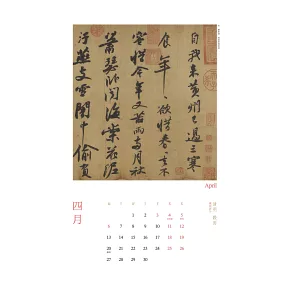 自我來黃州已過三寒
食年〻欲惜春〻去不
容惜今年又苦雨兩月秋
蕭瑟卧聞海棠花泥
汙燕支雪闇中偷負
April
四月
1 2 3 4 5
6 7 8 9 10 11 12
13 14 15 16 17 18 19
20 21 22 23 24 25 26
27 28 29 30